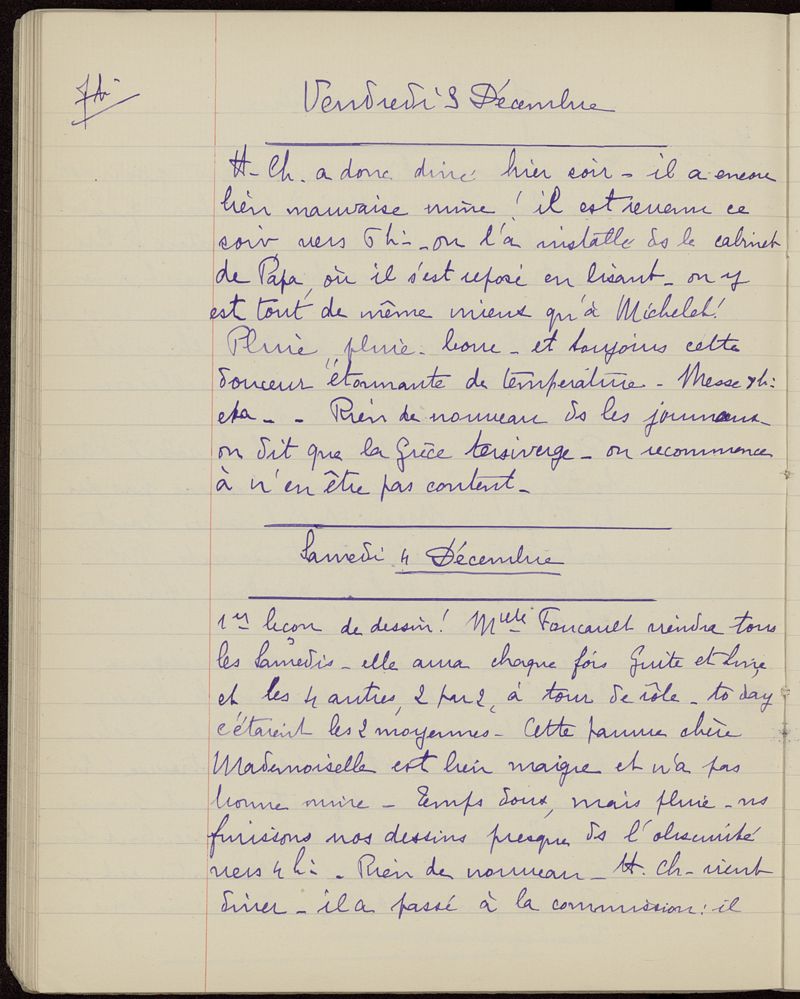 7h-
Vendredi 3 Décembre
H- Ch. a donc dîné hier soir - il a encore
bien mauvaise mine ! il est revenu ce
soir, vers 6h- on l'a installé ds le cabinet
de Papa, où il s'est reposé en lisant - on y
est tout de même mieux qu'à Michelet !
Pluie, pluie - boue - et toujours cette
douceur étonnante de température - Messe 7h:
etc - - Rien de nouveau ds les journaux -
on dit que la Grèce tergiverge - on recommence
à n'en être pas content -
Samedi 4 Décembre
1er leçon de dessin ! Melle Foucault viendra tous
les Samedis - elle aura chaque fois Guite et
et les 4 autres, 2 par 2, à tour de rôle - to day
c'étaient les 2 moyennes - Cette pauvre chère
Mademoiselle est bien maigre et n'a pas
bonne mine - Temps doux, mais pluie - ns
finissons nos dessins presque ds l'obscurité
vers 4h- - Rien de nouveau - H. Ch- vient
dîner - il a passé à la commission : il